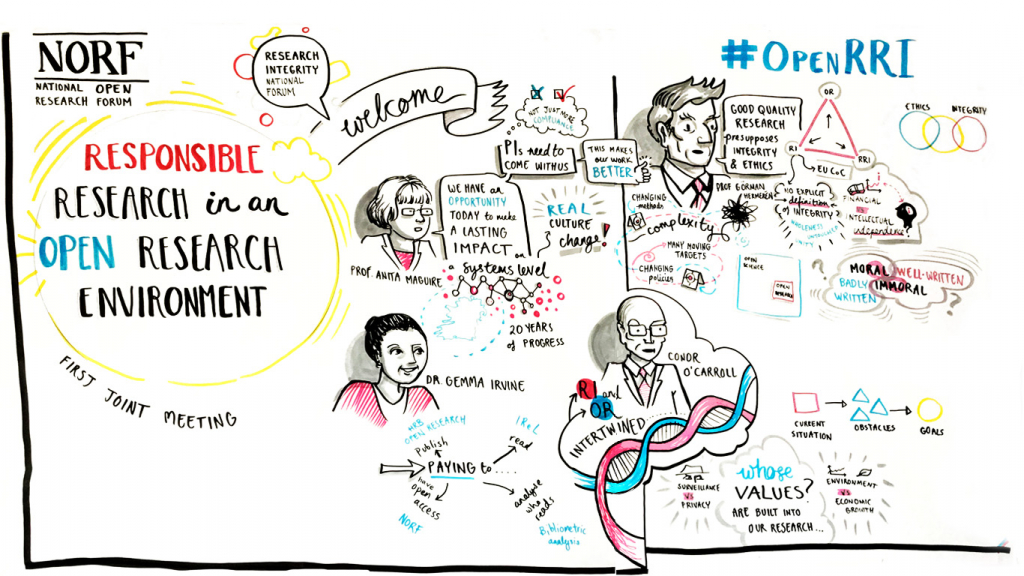 NORF
NATIONAL OPEN
RESEARCH FORUM
RESEARCH
INTEGRITY
NATIONAL
FORUM
welcome
RESPONSIBLE
RESEARCH in an
OPEN RESEARCH
ENVIRONMENT
FIRST JOINT MEETING
NOT JUST MORE
COMPLIANCE
PIs need to
COME WITH US
THIS MAKES
our WORK
BETTER
WE HAVE an
OPPORTUNITY
TODAY to make
A LASTING
IMPACT on
a systems level
PROF. ANITA MAGUIRE
REAL
CULTURE
change!
20 YEARS
of PROGRESS
DR. GEMMA IRVINE
HRB
OPEN RESEARCH
Publish
IReL
read
PAYING to....
have
open
access
NORF
analyse
who
reads
Bibliometric
analysis
#OPENRRI
GOOD QUALITY
RESEARCH
presupposes
INTEGRITY
& ETHICS
PROF GÖRMAN
HERMERÉN
OR
RI
RRI
EU COC
ETHICS
INTEGRITY
CHANGING
methods
complexity
MANY MOVING
TARGETS
CHANGING
policies
NO EXPLICIT
definition
of INTEGRITY
WHOLENESS
FINANCIAL
VS
INTELLECTUAL
independence
OPEN
SCIENCE
OPEN
?
MORAL WELL-WRITTEN
BADLY IMMORAL
WRITTEN
?
CONOR
O'CARROLL
RI and
OR
INTERTWINED
CURRENT
SITUATION
OBSTACLES
GOALS
SURVEILLANCE
VS
PRIVACY
whose
VALUES?
ARE BUILT INTO
OUR RESEARCH...
ENVIRONMENT
VS
ECONOMIC
GROWTH